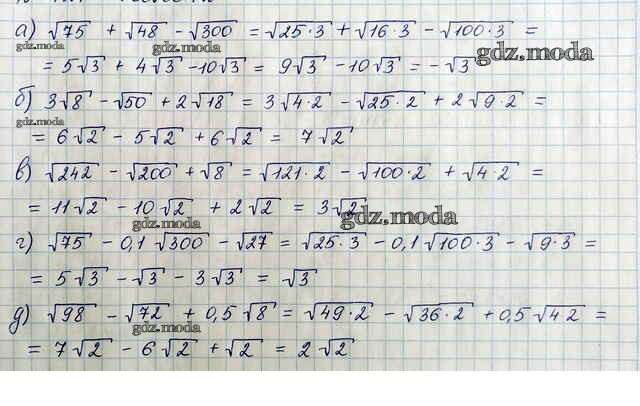 а) √75 + √48 - √300 = √25·3 + √16·3 - √100·3 =
gdz.moda
gdz.moda
gdz.moda
= 5√3 + 4√3 - 10√3 = 9√3 - 10√3 = -√3
б) 3√8 - √50 + 2√18 = 3√4·2 - √25·2 + 2√9·2 =
gdz.moda
= 6√2 - 5√2 + 6√2 = 7√2
в) √242 - √200 + √8 = √121·2 - √100·2 + √4·2 =
= 11√2 - 10√2 + 2√2 = 3√2
gdz.moda
gdz.moda
г) √75 - 0,1√300 - √27 = √25·3 - 0,1√100·3 - √9·3 =
= 5√3 - √3 - 3√3 = √3
д) √98 - √72 + 0,5√8 = √49·2 - √36·2 + 0,5√4·2 =
gdz.moda
= 7√2 - 6√2 + √2 = 2√2